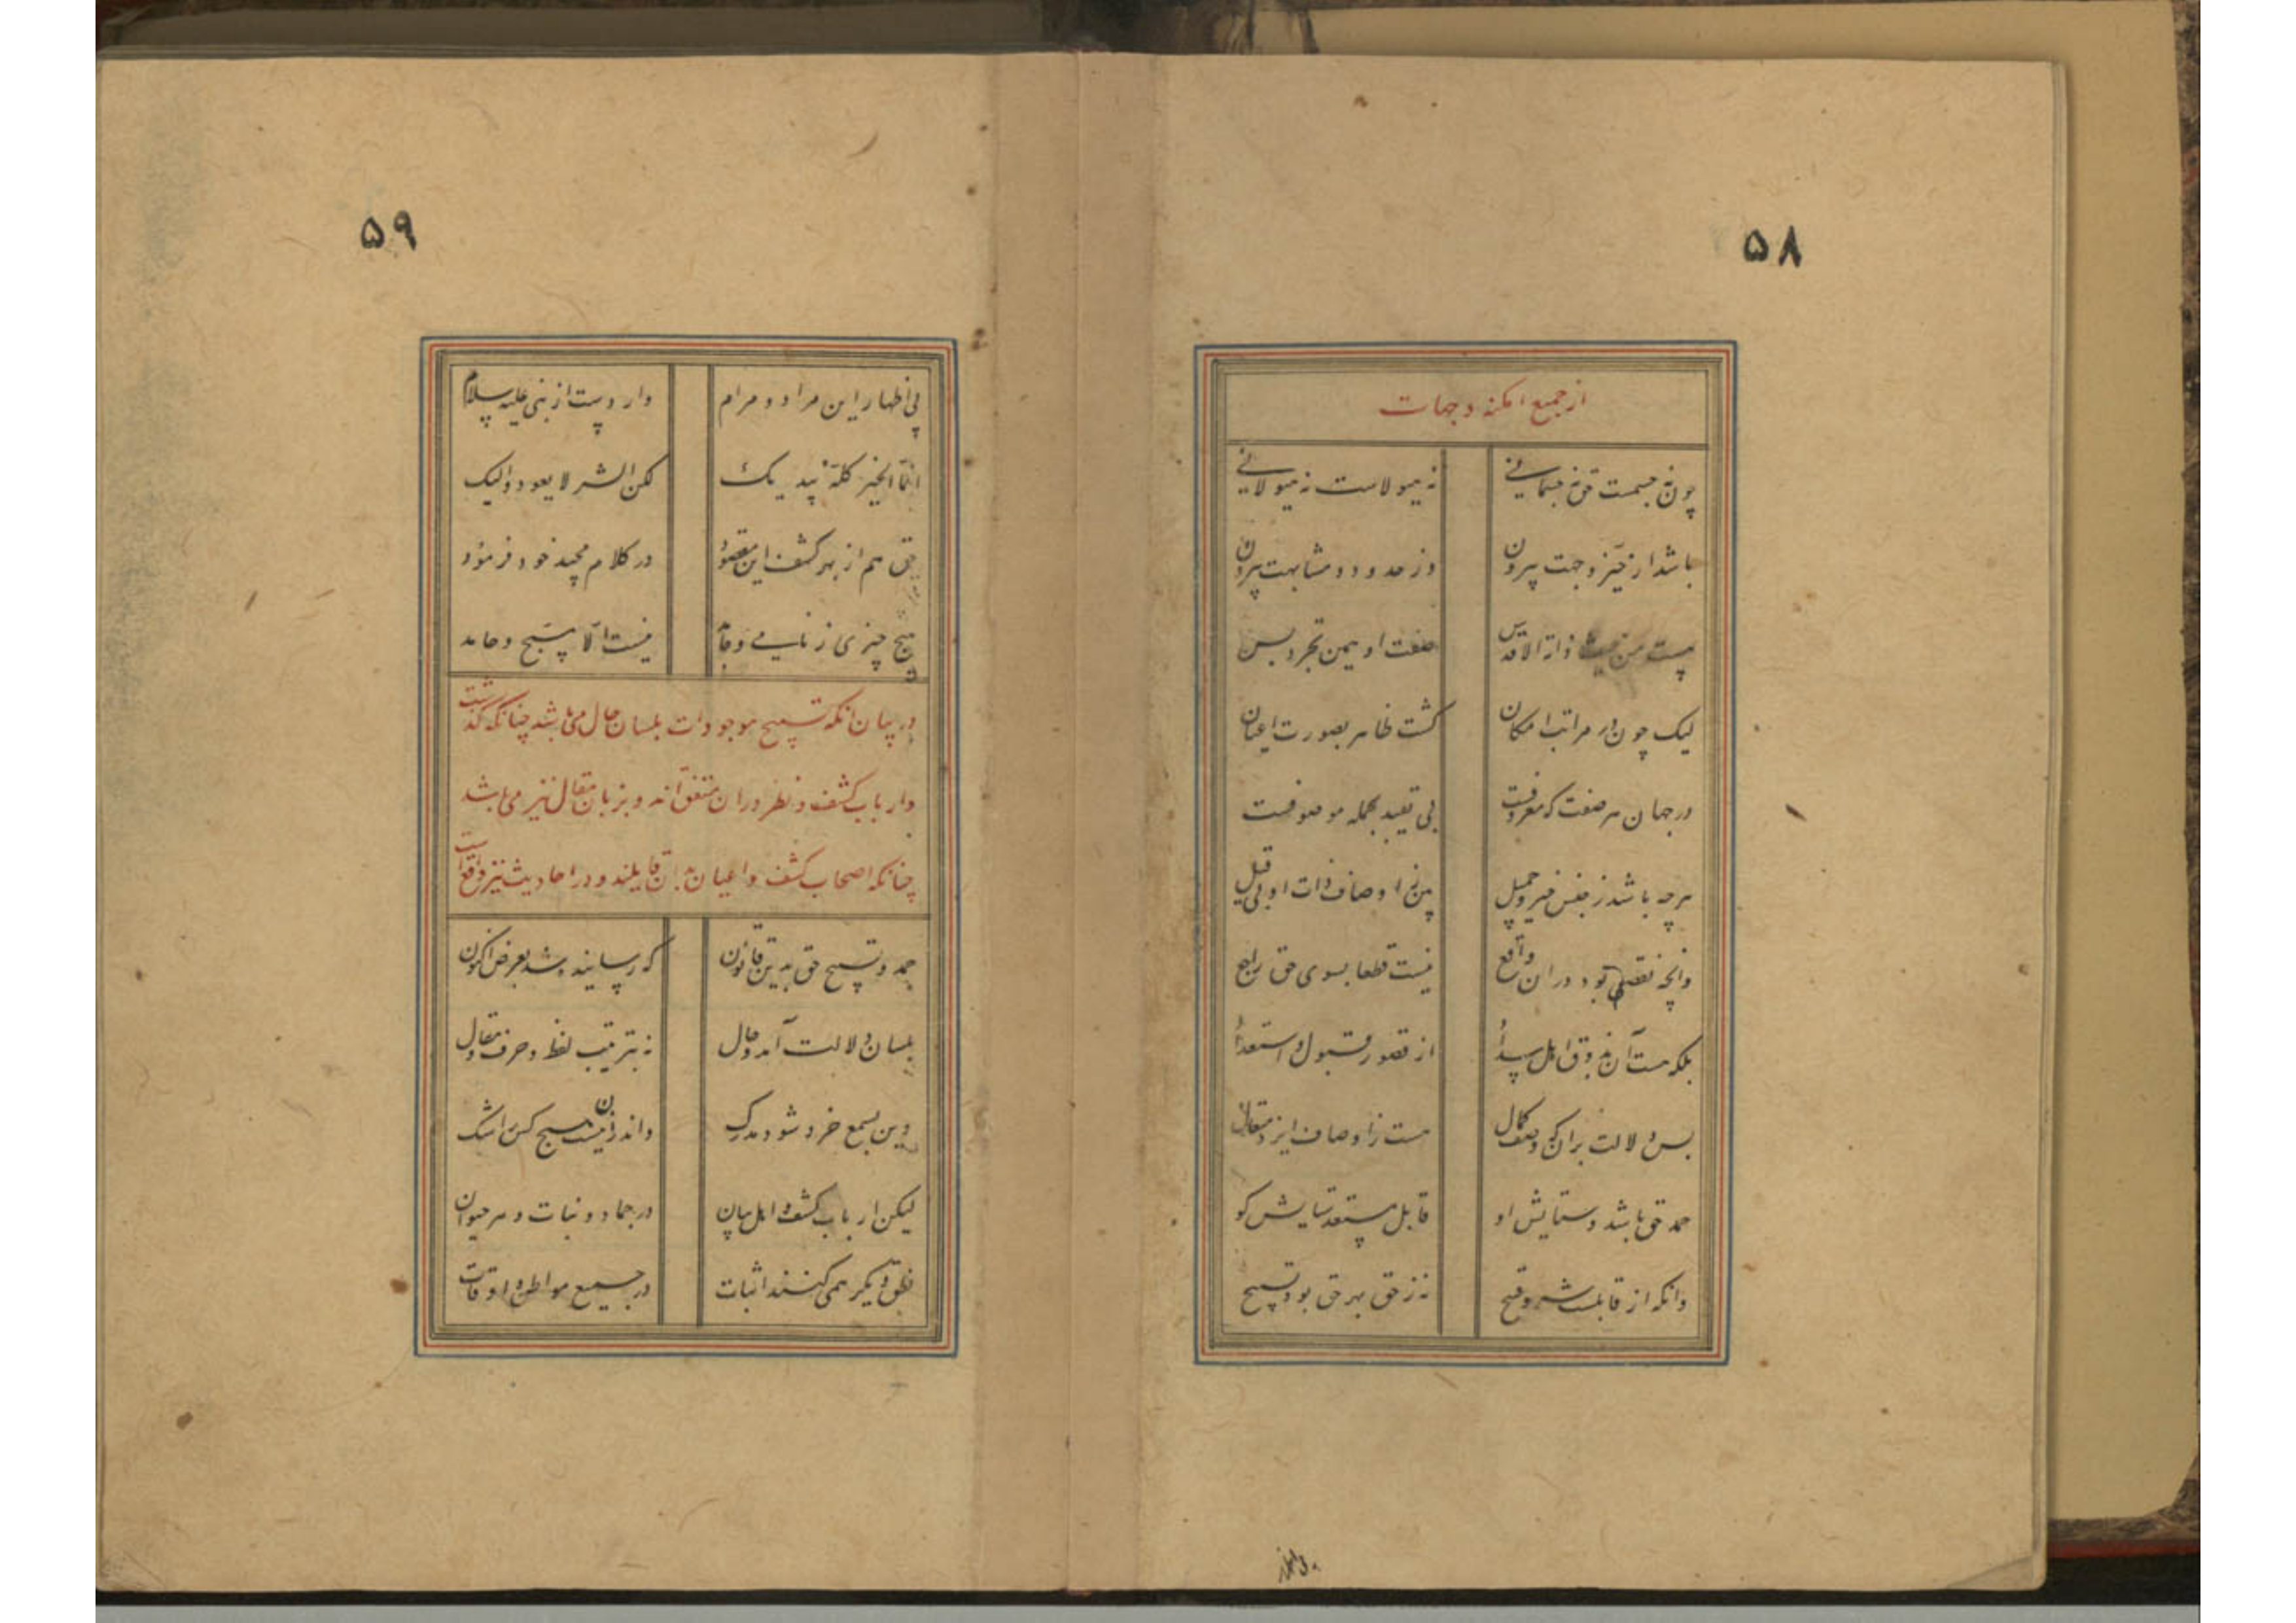 ۵۸
از جمیع امکنه و جهات
چون نه جسمست حق نه جسمانی نه هیولاست نه هیولانی
باشد از حیز و جهت بیرون وز حدود و مشابهت بیرون
هست من حیث ذاته الاقدس صفت او همین تجرد بس
لیک چون در مراتب امکان گشت ظاهر بصورت اعیان
در جهان هر صفت که معروفست بی تقید بجمله موصوفست
هرچه باشد ز جنس خیر و جمیل بین ز اوصاف ذات او بی قیل
وانچه نقصی بود در آن واقع نیست قطعا بسوی حق راجع
بلکه هست آن بذوق اهل سداد از قصور قبول و استعداد
بس دلالت بر آن که وصف کمال هست ز اوصاف ایزد متعال
حمد حق باشد و ستایش او قابل مستعد ستایش گو
وانکه از قابلست شر و قبیح نه ز حق بهر حق بود تسبیح
بی اظهار
۵۹
پی اظهار این مراد و مرام وارد است از نبی علیه سلام
انما الخیر کله بیدیک لکن الشر لا یعود الیک
حق هم از بهر کشف این مقصود در کلام مجید خود فرمود
هیچ چیزی ز نامی و جامد نیست الا مسبح و حامد
در بیان آنکه تسبیح موجودات بلسان حال می باشد چنانکه گذشت
و ارباب کشف و نظر در آن متفق اند و بزبان مقال نیز می باشد
چنانکه اصحاب کشف و اعیان بدان قایلند و در احادیث نیز واقع است
حمد و تسبیح حق بدین قانون که رسانیده شد بعرض اکنون
بلسان دلالت آمد و حال نه بترتیب لفظ و حرف و مقال
وین بسمع خرد شود مدرک واندرین نیست هیچ کس را شک
لیکن ارباب کشف و اهل بیان در جماد و نبات و هر حیوان
نطق دیگر همی کنند اثبات در جمیع مواطن و اوقات